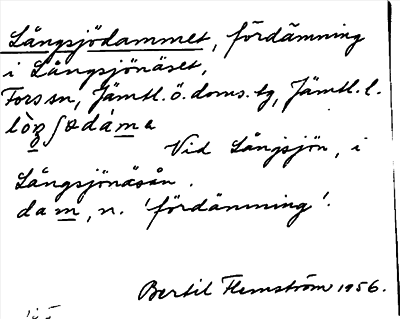 Långsjödammet, fördämning
i Långsjönäset,
Fors sn, Jämtl. ö. doms. tg, Jämtl. l.
Vid Långsjön, i
Långsjönäsån.
dam, n. 'fördämning'.
Bertil Flemström 1956.